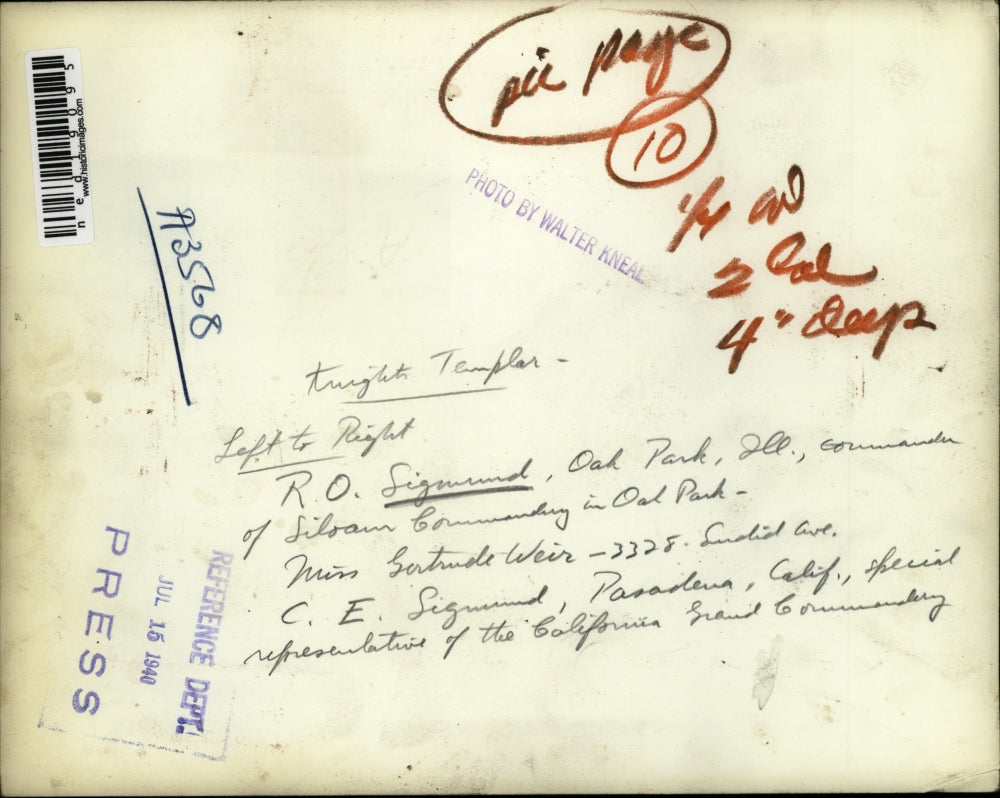 pic page
10
PHOTO BY WALTER KNEAL
2 Col
4" deep
www.historicimages.com
ned19095
A3568
Knights Templar -
Left to Right
R. O. Sigmund, Oak Park, Ill., commander
of Siloam Commandery in Oak Park -
Miss Gertrude Weir - 3328. Euclid Ave.
C. E. Sigmund, Pasadena, Calif., special
representative of the California Grand Commandery
REFERENCE DEPT.
JUL 15 1940
PRESS